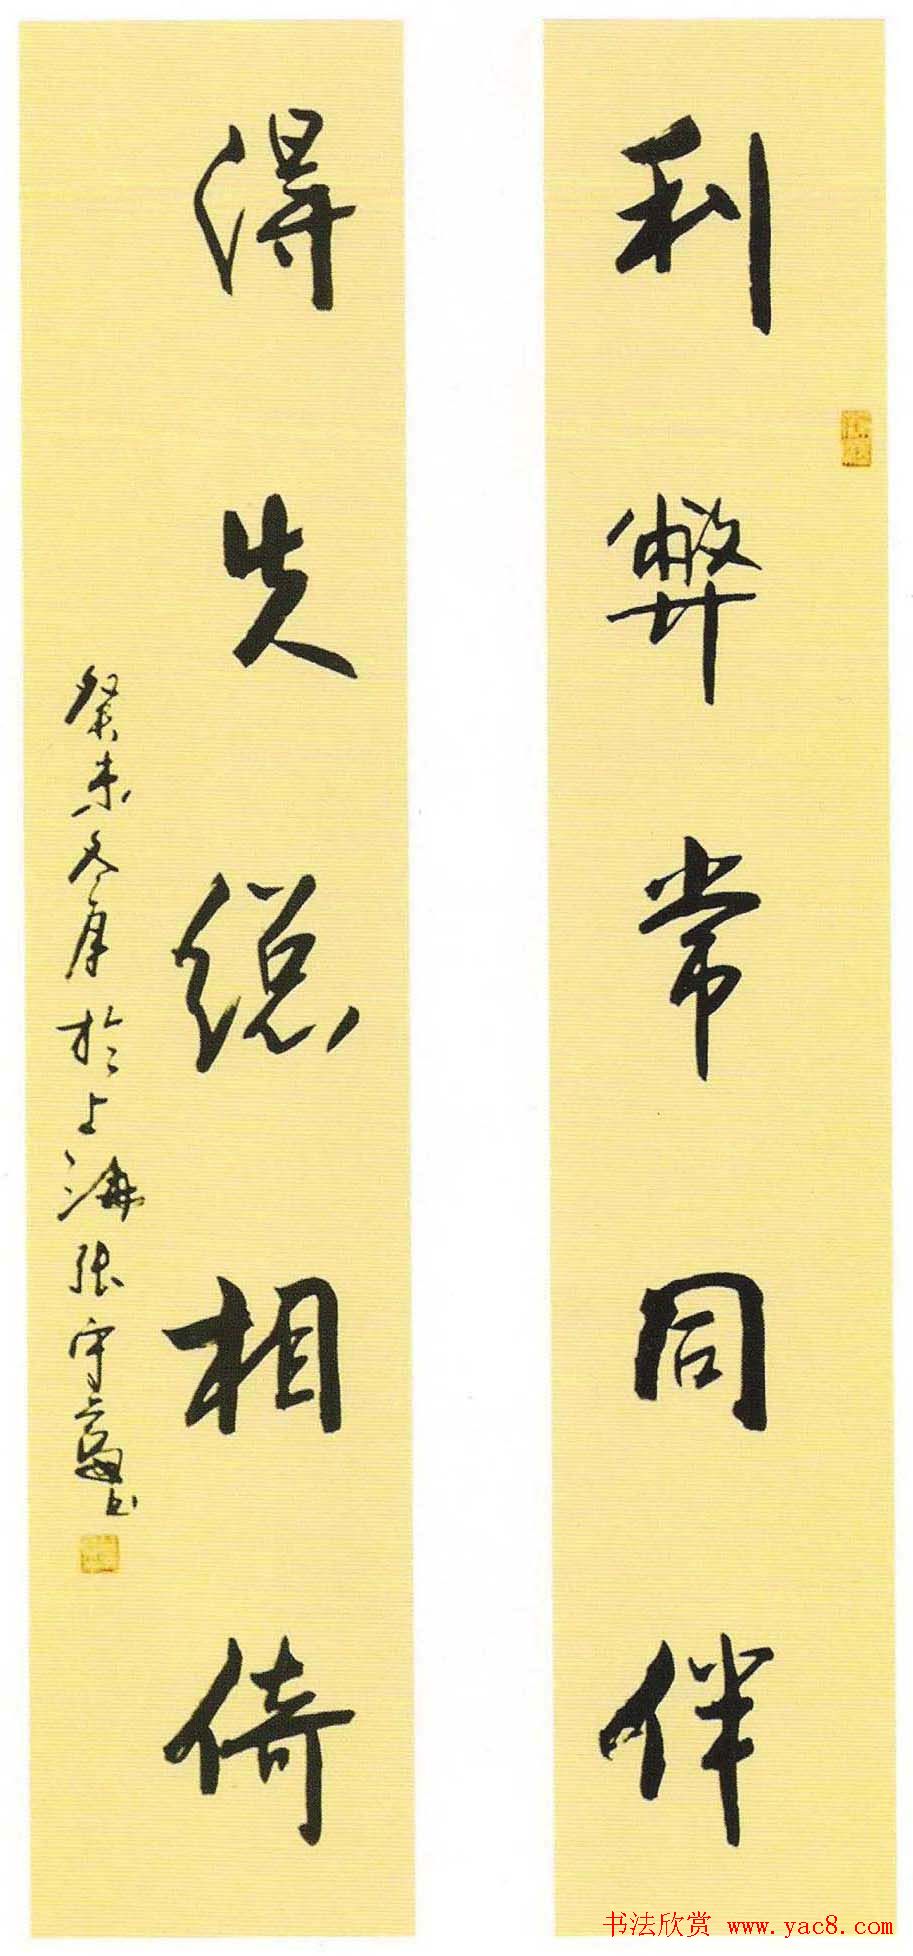 利弊常同伴
得失總相倚
癸未冬月於上海張守富書
书法欣赏 www.yac8.com